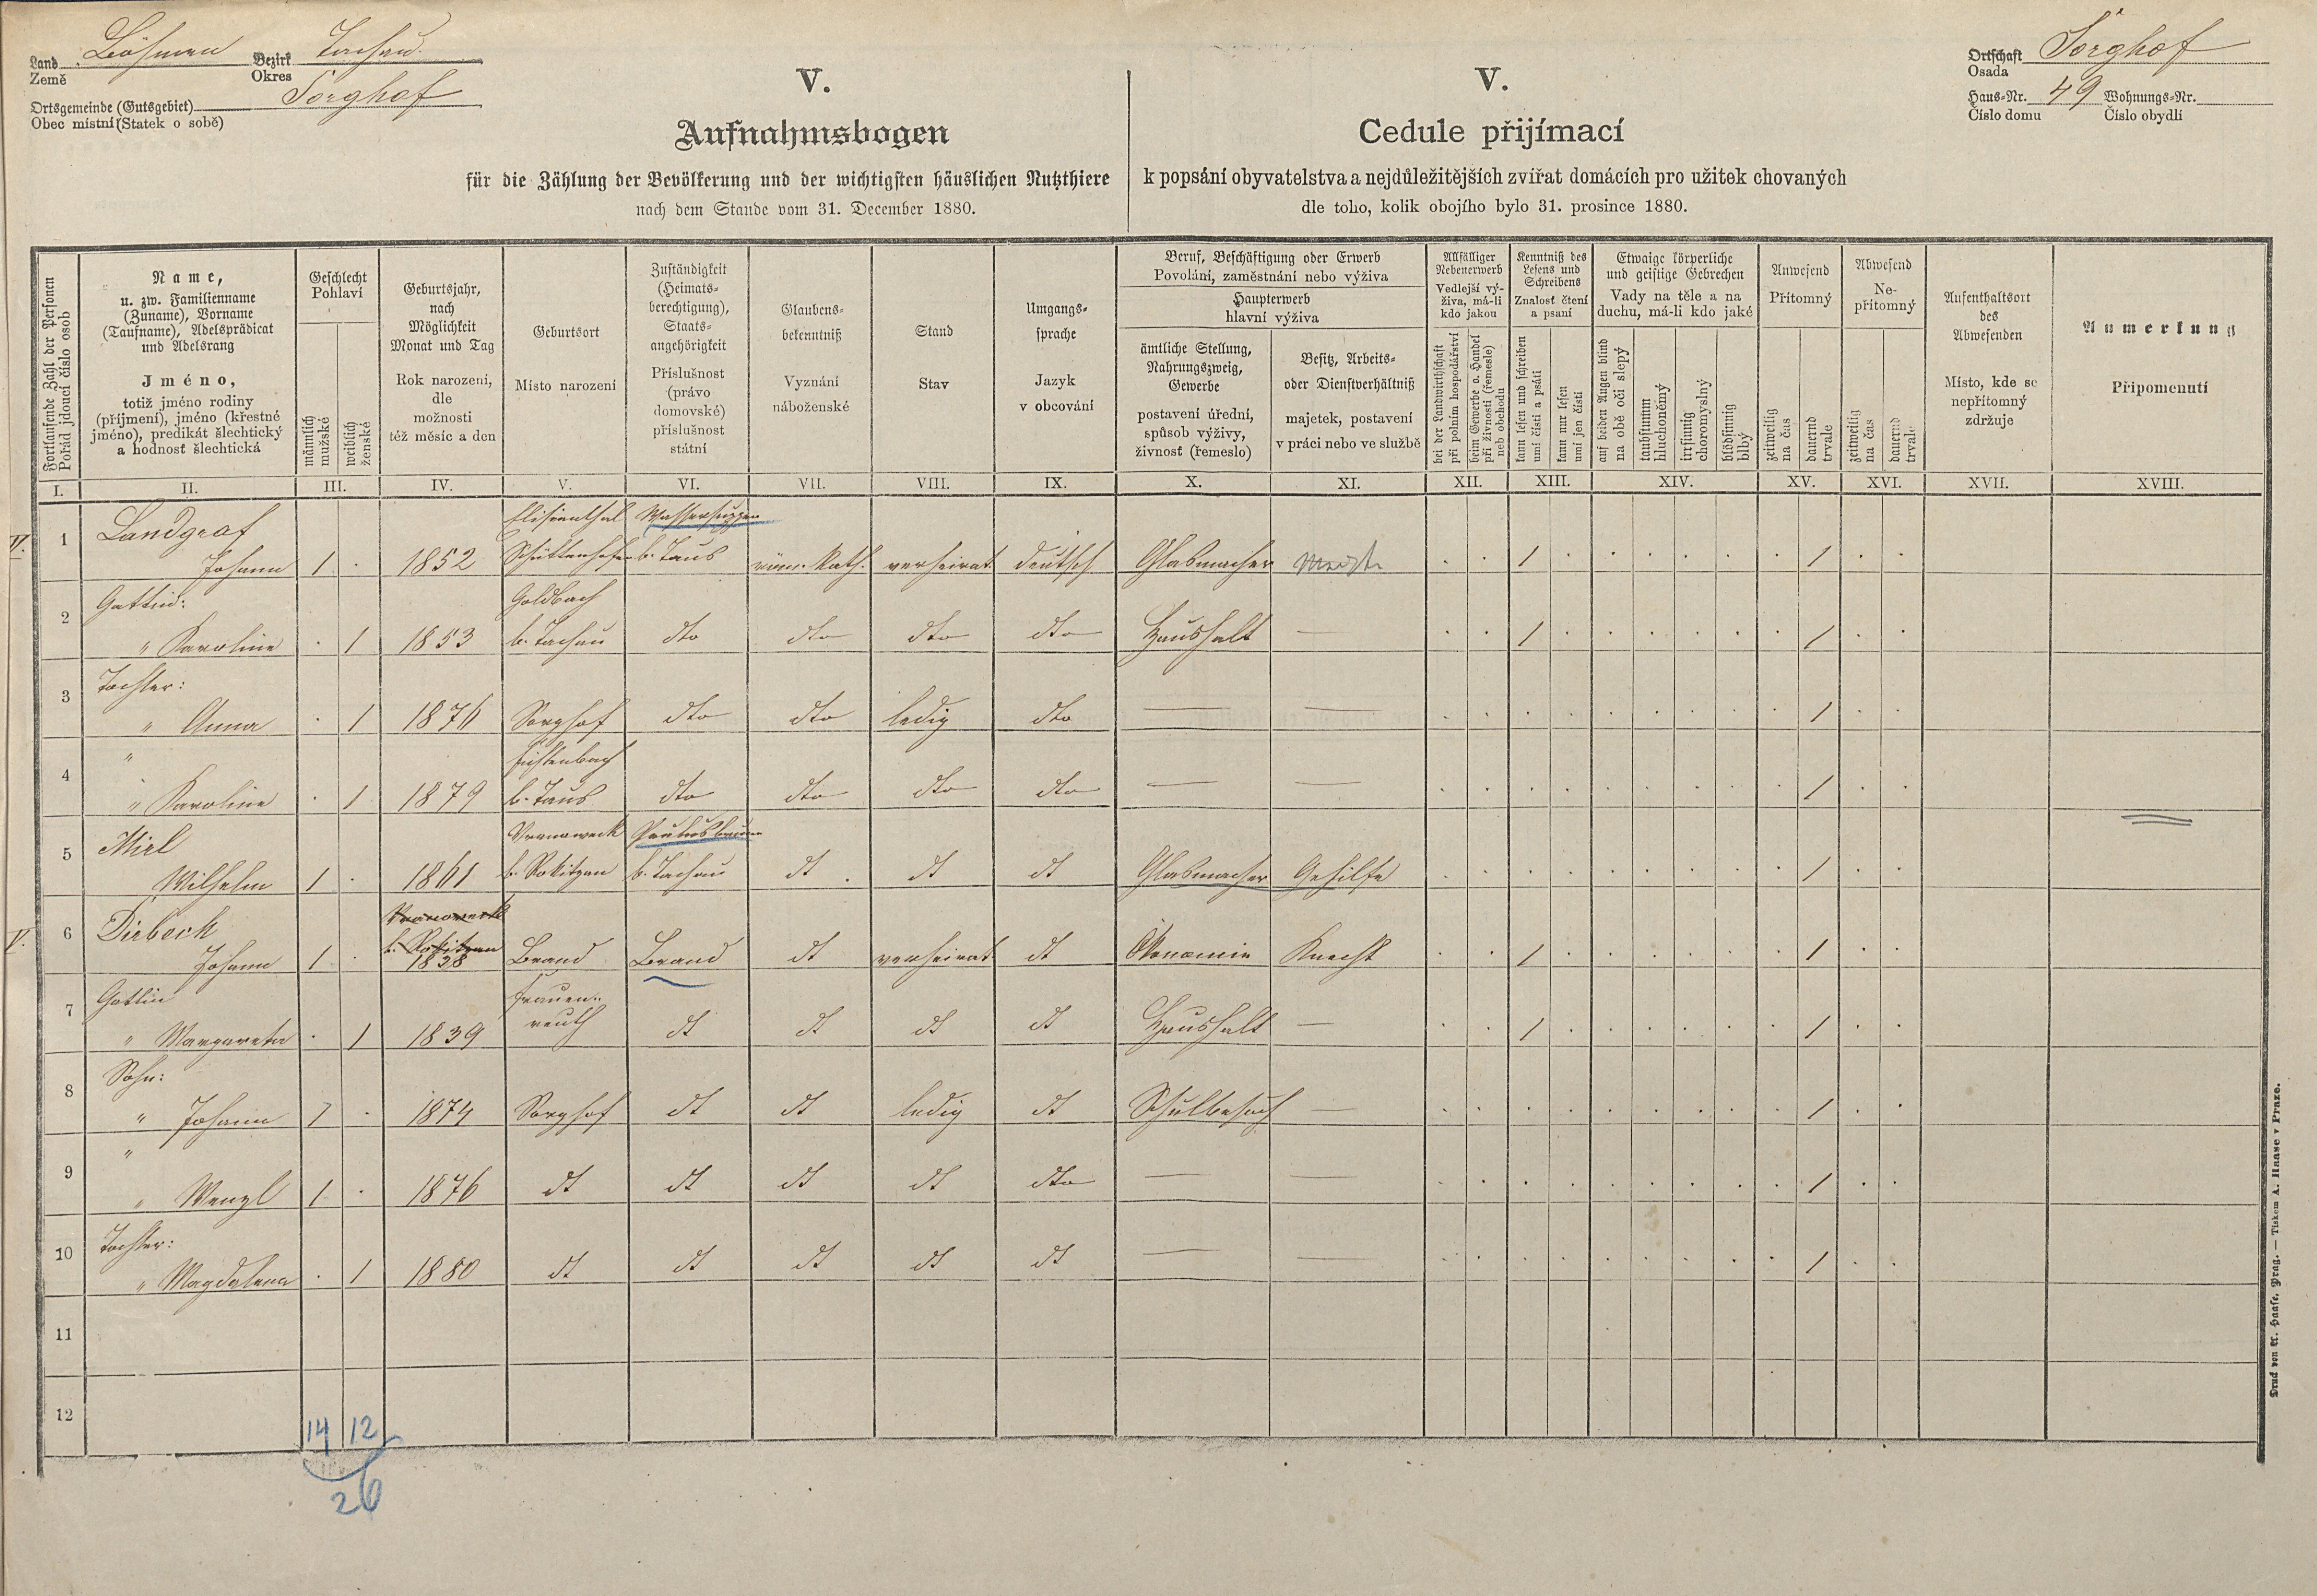 Land Böhmen Bezirk Tachau
Země Okres
Ortsgemeinde (Gutsgebiet) Sorghof
Obec místní (Statek o sobě)
Ortschaft Sorghof
Osada
Haus-Nr. 49 Wohnungs-Nr.
Číslo domu Číslo obydlí
V.
Aufnahmsbogen
für die Zählung der Bevölkerung und der wichtigsten häuslichen Nutzthiere
nach dem Stande vom 31. December 1880.
V.
Cedule přijímací
k popsání obyvatelstva a nejdůležitějších zvířat domácích pro užitek chovaných
dle toho, kolik obojího bylo 31. prosince 1880.
Fortlaufende Zahl der Personen
Pořád jdoucí číslo osob
Name,
u. zw. Familienname
(Zuname), Vorname
(Taufname), Adelsprädicat
und Adelsrang
Jméno,
totiž jméno rodiny
(příjmení), jméno (křestné
jméno), predikát šlechtický
a hodnosť šlechtická
Geschlecht
Pohlaví
männlich
mužské
weiblich
ženské
Geburtsjahr,
nach
Möglichkeit
Monat und Tag
Rok narození,
dle
možnosti
též měsíc a den
Geburtsort
Místo narození
Zuständigkeit
(Heimats-
berechtigung),
Staats-
angehörigkeit
Příslušnost
(právo
domovské)
příslušnost
státní
Glaubens-
bekenntniß
Vyznání
náboženské
Stand
Stav
Umgangs-
sprache
Jazyk
v obcování
Beruf, Beschäftigung oder Erwerb
Povolání, zaměstnání nebo výživa
Haupterwerb
hlavní výživa
ämtliche Stellung,
Nahrungszweig,
Gewerbe
postavení úřední,
spůsob výživy,
živnosť (řemeslo)
Besitz, Arbeits-
oder Dienstverhältniß
majetek, postavení
v práci nebo ve službě
Allfälliger
Nebenerwerb
Vedlejší vý-
živa, má-li
kdo jakou
bei der Landwirthschaft
při polním hospodářství
beim Gewerbe o. Handel
při živnosti (řemesle)
neb obchodu
Kenntniß des
Lesens und
Schreibens
Znalosť čtení
a psaní
kann lesen und schreiben
umí čísti a psáti
kann nur lesen
umí jen čísti
Etwaige körperliche
und geistige Gebrechen
Vady na těle a na
duchu, má-li kdo jaké
auf beiden Augen blind
na obě oči slepý
taubstumm
hluchoněmý
irrsinnig
choromyslný
blödsinnig
blbý
Anwesend
Přítomný
zeitweilig
na čas
dauernd
trvale
Abwesend
Ne-
přítomný
zeitweilig
na čas
dauernd
trvale
Aufenthaltsort
des
Abwesenden
Místo, kde se
nepřítomný
zdržuje
Anmerkung
Připomenutí
I. II. III. IV. V. VI. VII. VIII. IX. X. XI. XII. XIII. XIV. XV. XVI. XVII. XVIII.
Landgraf Elisenthal Wassersuppen
V. 1 Johann 1 . 1852 Schüttenhofen b. Taus röm. kath. verheirat deutsch Glasmacher . . 1 . . . . . . 1 . .
Gattin: Goldbach
2 " Karoline . 1 1853 b. Tachau dto dto dto dto Haushalt — . . 1 . . . . . . 1 . .
Tochter:
3 " Anna . 1 1876 Sorghof dto dto ledig dto — — . . . . . . . . . 1 . .
" Fichtenbach
4 " Karoline . 1 1879 b. Taus dto dto dto dto — — . . . . . . . . . 1 . .
Mirl Wranoweck Paulusbrunn
5 Wilhelm 1 . 1861 b. Rokitzan b. Tachau dt . dt dt Glasmacher Gehilfe . . . . . . . . . 1 . .
Dirbeck Wranoweck
b. Rokitzan
V. 6 Johann 1 . 1838 Brand Brand dt verheirat dt Ökonomie Knecht . . 1 . . . . . . 1 . .
Gattin Frauen-
7 " Margareta . 1 1839 reuth dt dt dt dt Haushalt — . . 1 . . . . . . 1 . .
Sohn:
8 " Johann 1 . 1874 Sorghof dt dt ledig dt Schulbesuch — . . . . . . . . . 1 . .
"
9 " Wenzl 1 . 1876 dt dt dt dt dto — — . . . . . . . . . 1 . .
Tochter:
10 " Magdalena . 1 1880 dt dt dt dt dt — — . . . . . . . . . 1 . .
11
12
14 12
26
Druck von A. Haase, Prag. — Tiskem A. Haase v Praze.